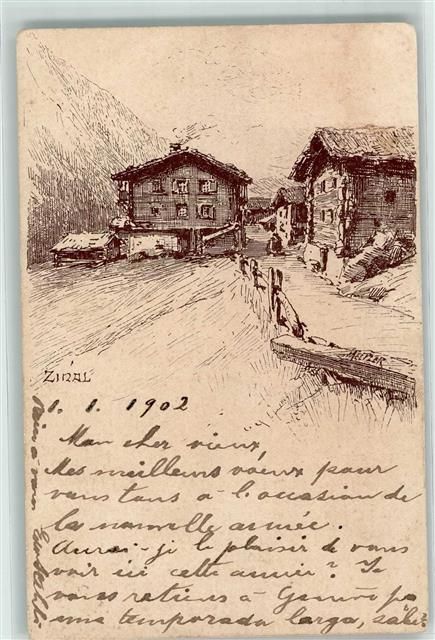 ZINAL
1. 1. 1902
Mon cher vieux,
Mes meilleurs voeux pour
vous tous à l'occasion de
la nouvelle année.
Aurai-je le plaisir de vous
voir ici cette année? Je
vous à Genève
una temporada larga,